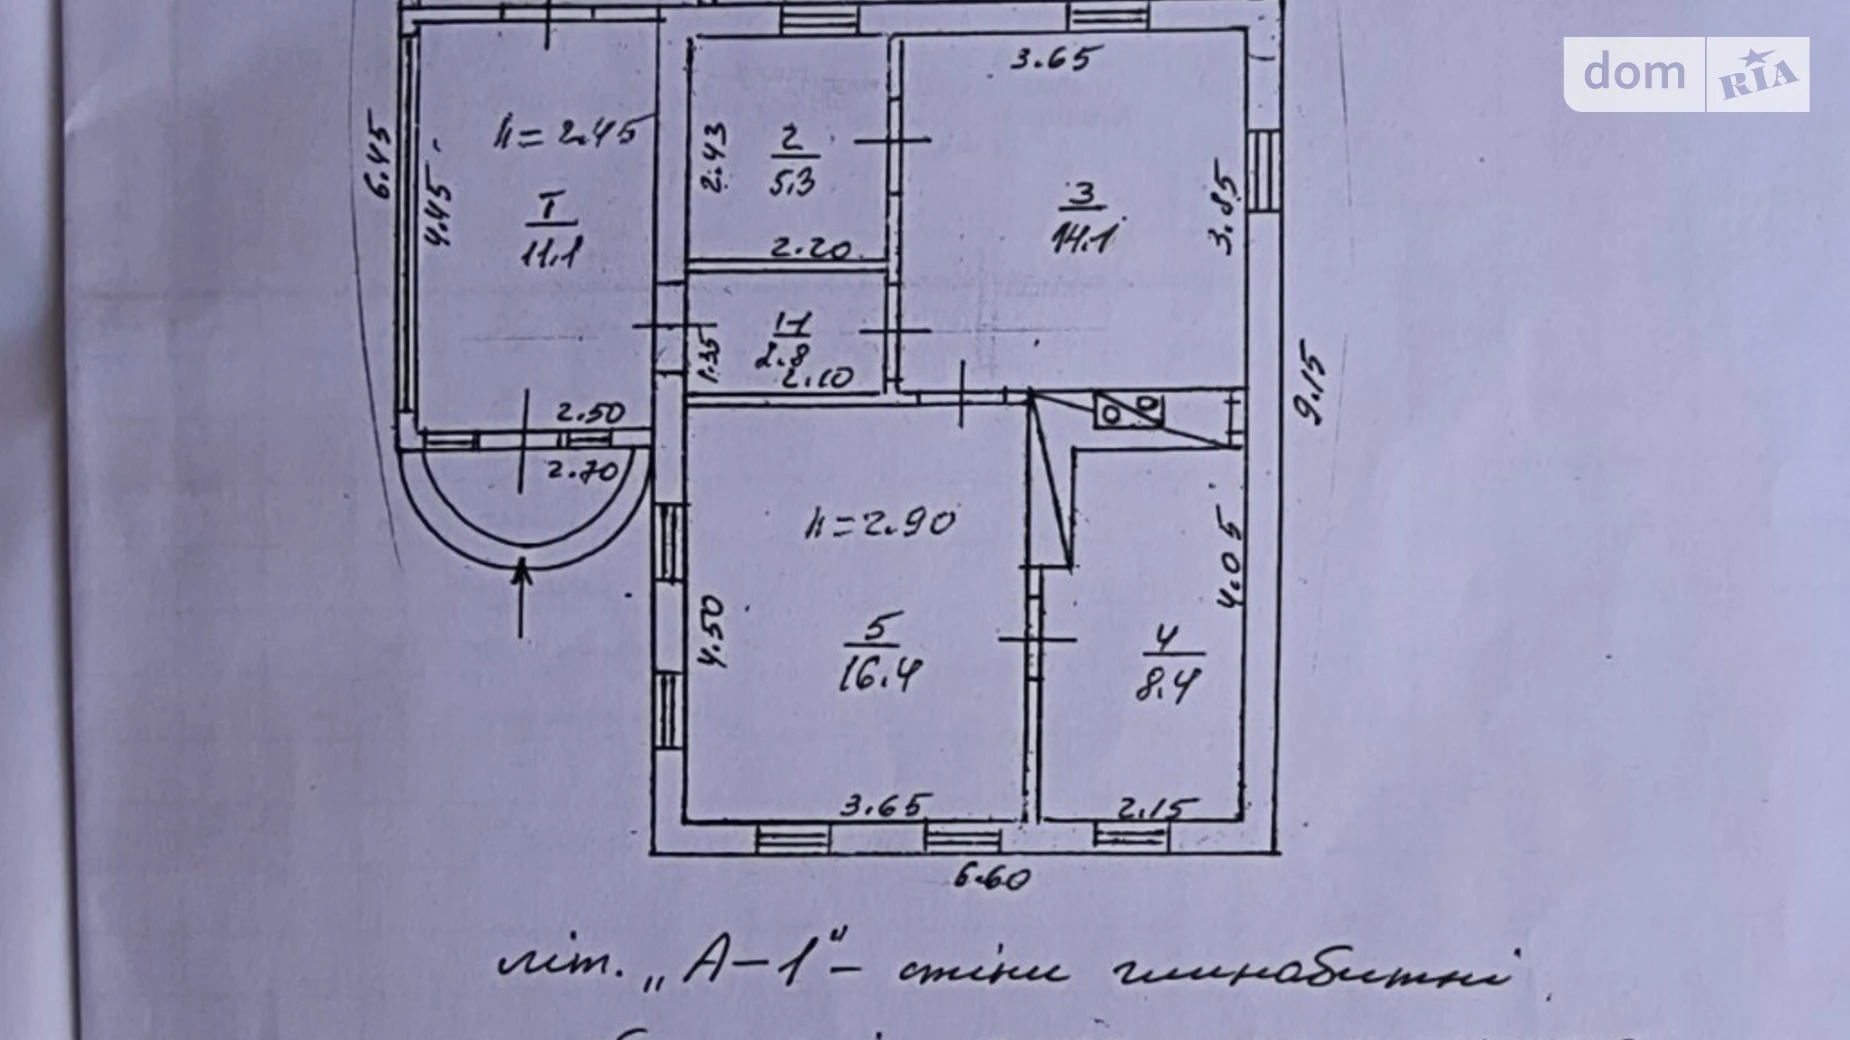 dom RIA
3.65
6.45
4.45
h=2.45
I
11.1
2.43
2
5.3
2.20
3
14.1
3.85
1-1
2.8
1.35
2.10
9.15
2.50
2.70
h=2.90
4.50
5
16.4
4.05
4
8.4
3.65
2.15
6.60
літ. „А-1" - стіни глинобитні